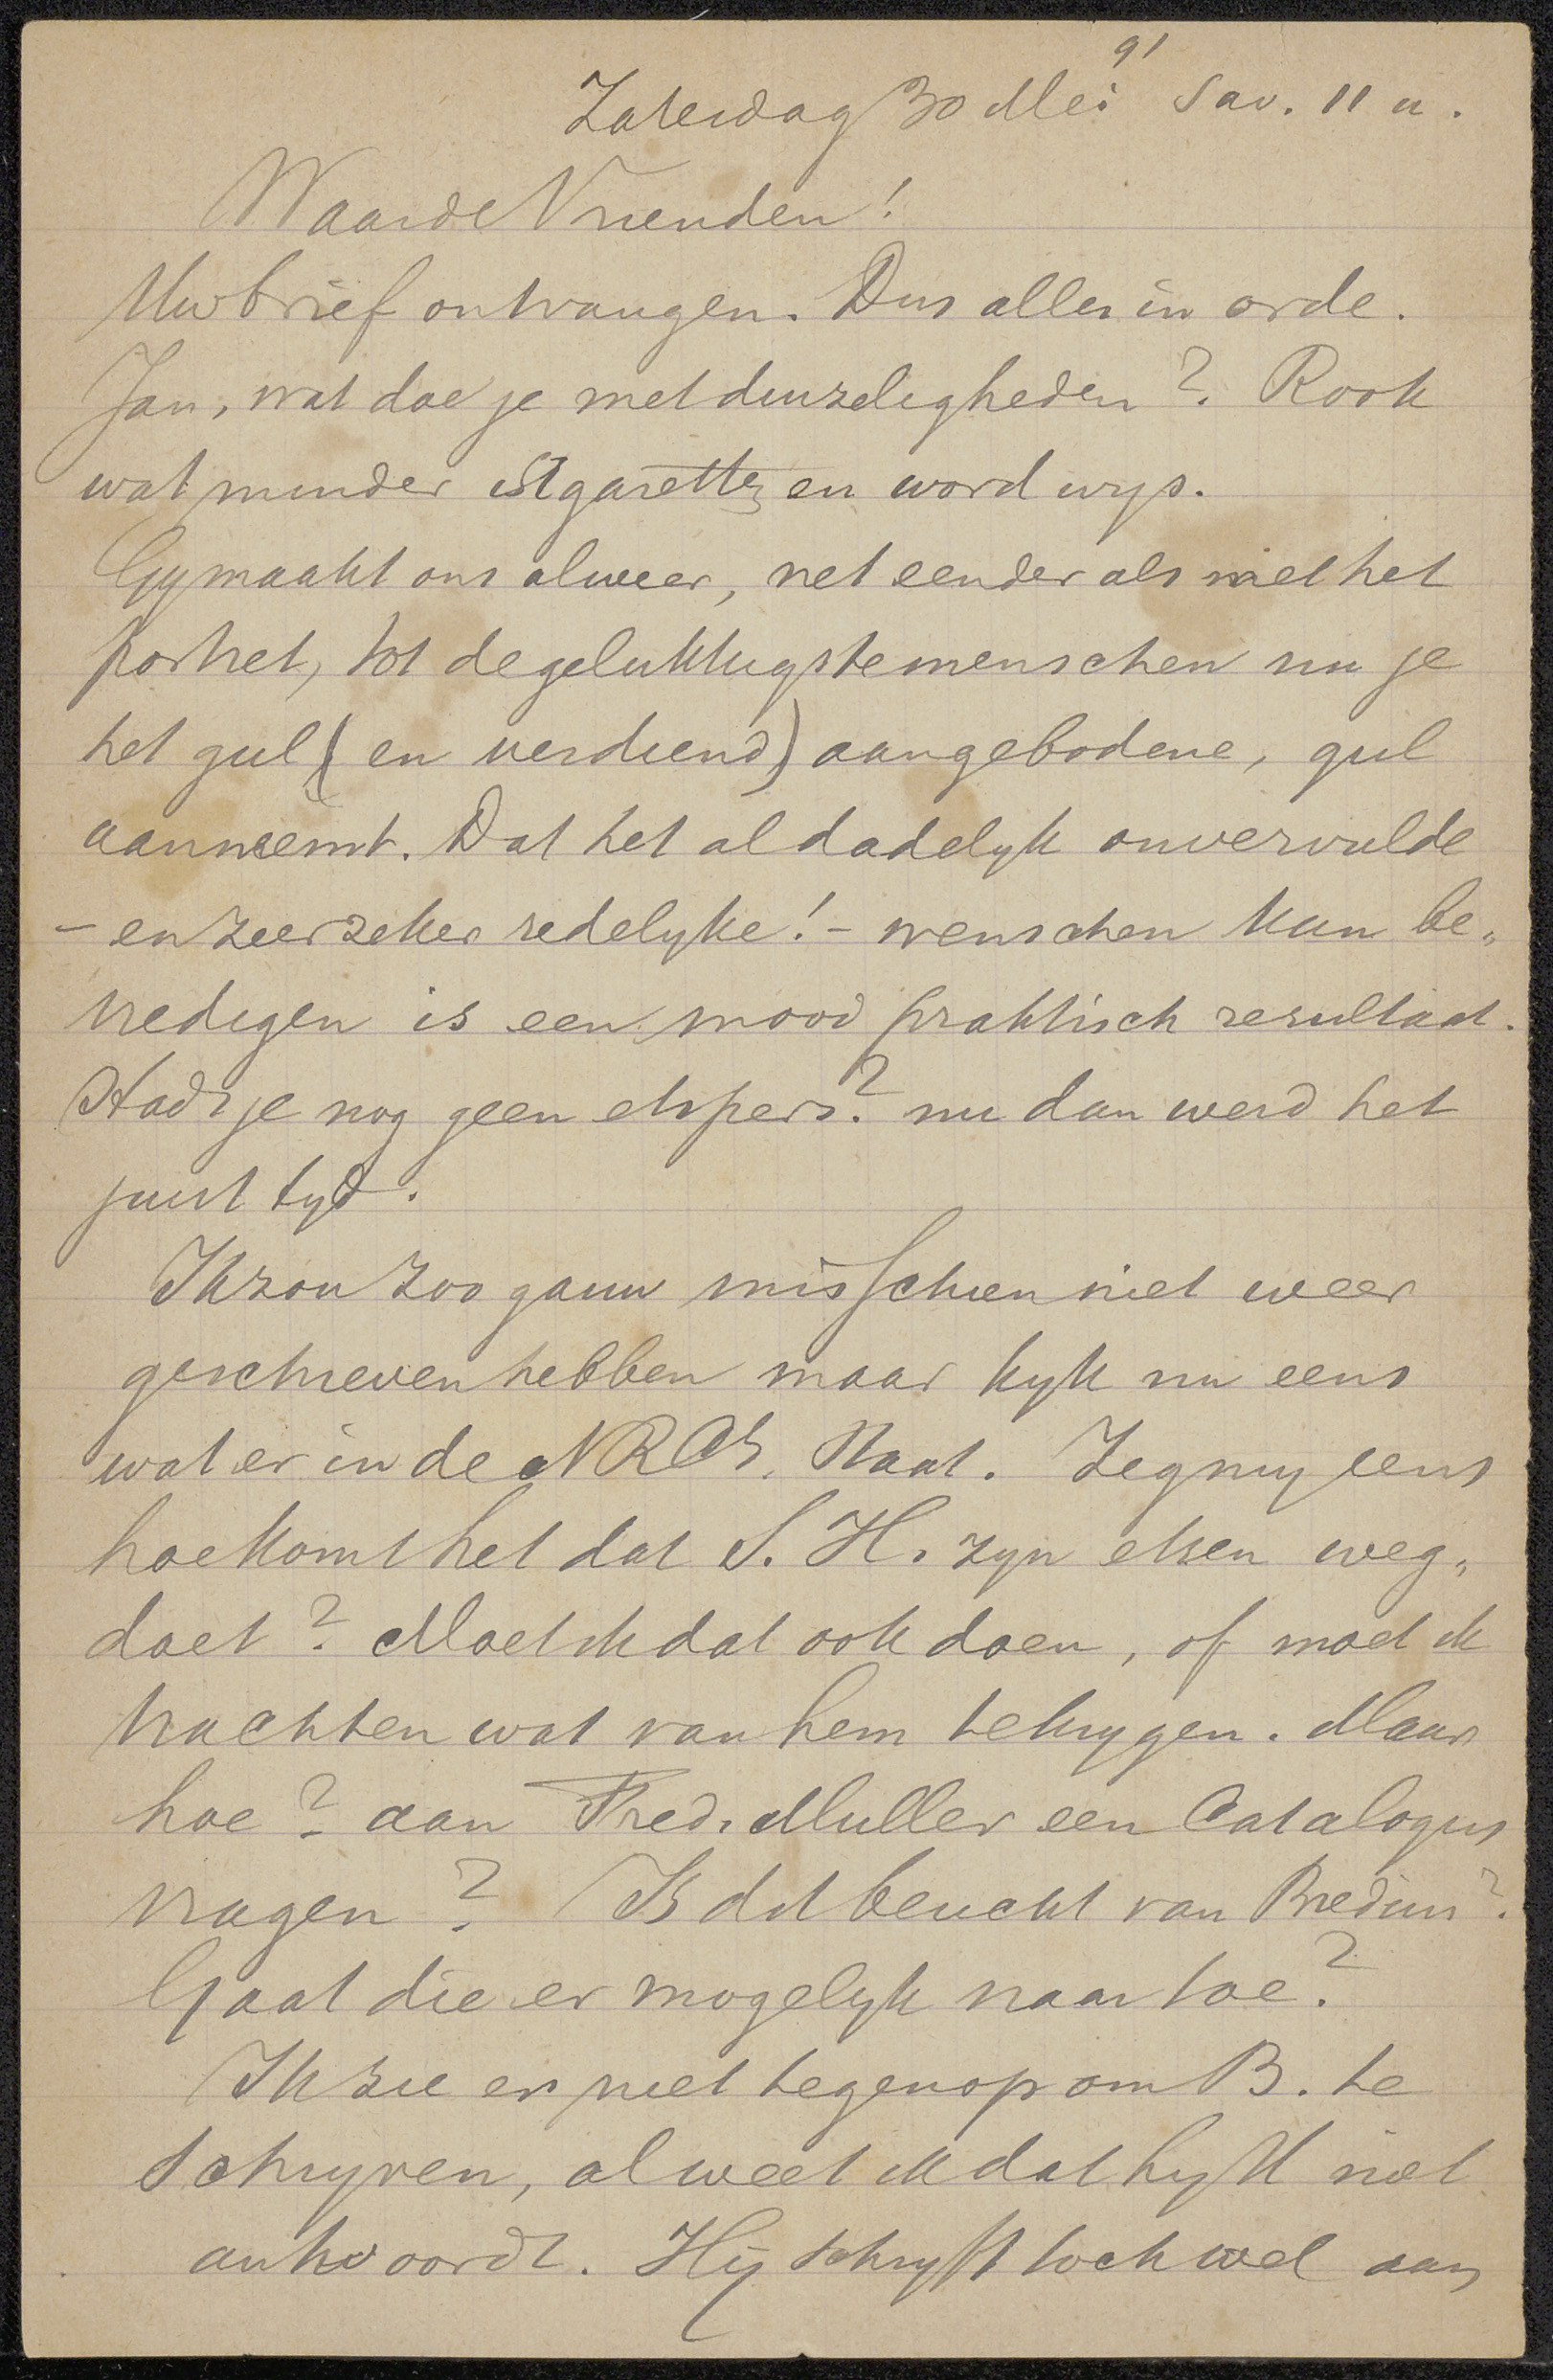 91
Zaterdag 30 Mei Sav. 11 u.
Waarde Vrienden!
Uw brief ontvangen. Dus alles in orde.
Jan, wat doe je met duizeligheden? Rook
wat minder sigaretten en word wijs.
Gy maakt ons alweer, net eender als met het
portret, tot de gelukkigste menschen nu je
het gul (en verdiend) aangebodene, gul
aanneemt. Dat het al dadelyk onvervulde
- en zeer zeker redelyke! - wenschen kan be„
vredigen is een mooi praktisch resultaat.
Hadt je nog geen etspers? nu dan werd het
juist tyd.
Ik zou zoo gauw misschien niet weer
geschreven hebben maar kyk nu eens
wat er in de NRCt. staat. Zeg my eens
hoe komt het dat S. H. zyn etsen weg„
doet? Moet ik dat ook doen, of moet ik
trachten wat van hem te krygen. Maar
hoe? aan Fred. Muller een Catalogus
vragen? Is dit bericht van Bredius?
Gaat die er mogelyk naar toe?
Ik zie er niet tegenop om B. te
schryven, al weet ik dat hy k niet
antwoordt. Hij schryft toch wel aan